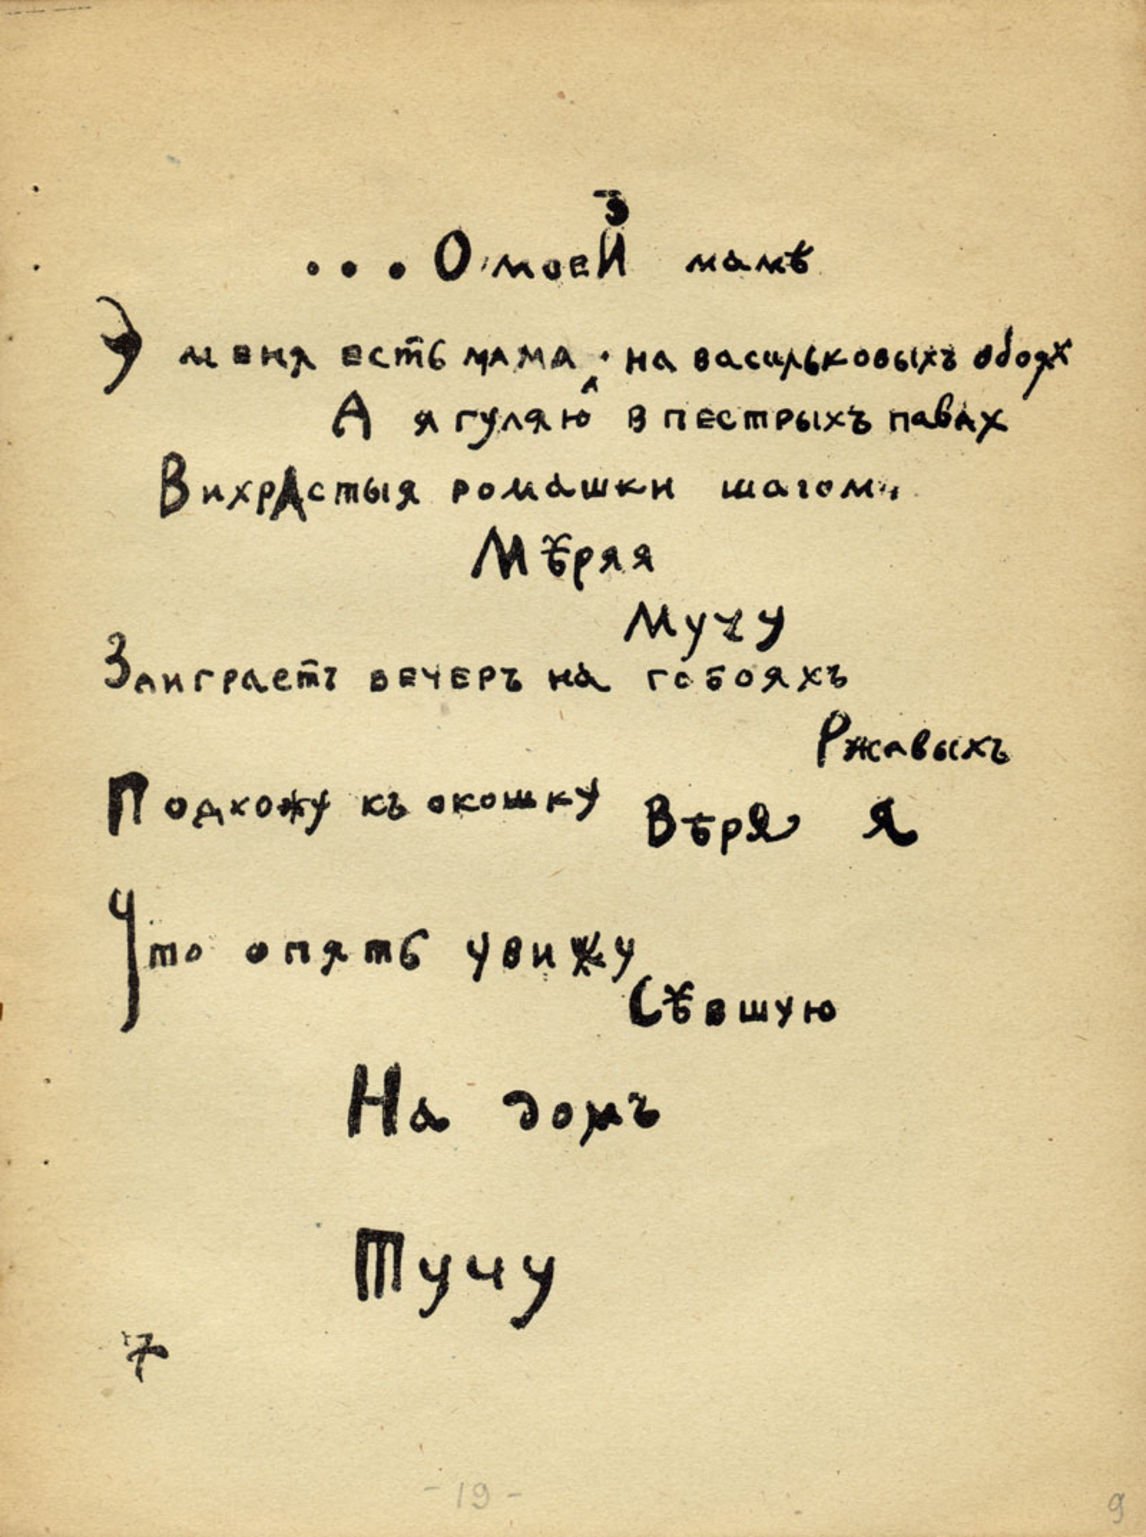 3
...О моей мамѣ
У меня есть мама · на васильковыхъ обоях
А я гуляю в пестрыхъ павах
Вихрастыя ромашки шагомъ
Мѣряя
Мучу
Заиграетъ вечеръ на гобояхъ
Ржавыхъ
Подхожу къ окошку Вѣря я
Что опять увижу
Сѣвшую
На домъ
Тучу
7
- 19 -
9